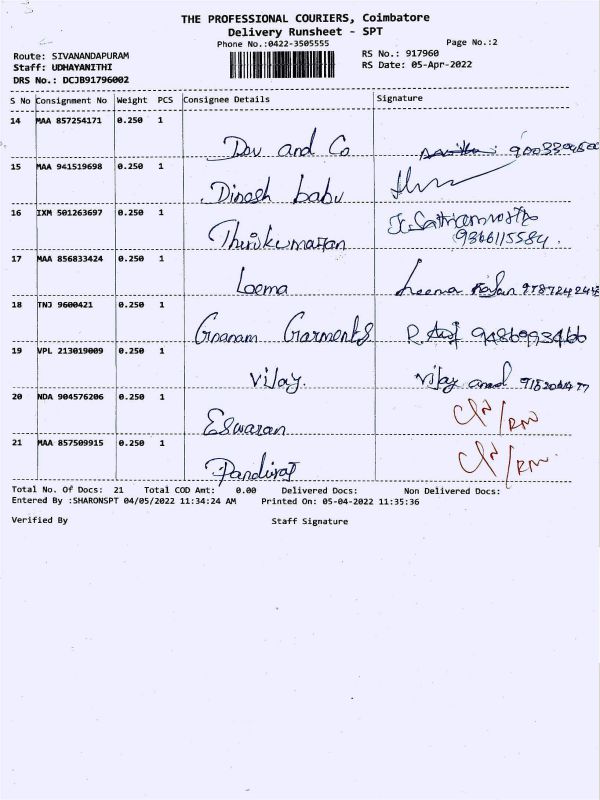 THE PROFESSIONAL COURIERS, Coimbatore
Delivery Runsheet - SPT
Phone No.:0422-3505555
Page No.:2
Route: SIVANANDAPURAM
RS No.: 917960
Staff: UDHAYANITHI
RS Date: 05-Apr-2022
DRS No.: DCJB91796002
S No Consignment No Weight PCS Consignee Details Signature
14 MAA 857254171 0.250 1 Dev and Co
15 MAA 941519698 0.250 1 Dinesh babu
16 IXM 501263697 0.250 1 Thirukumaran
9366115584
17 MAA 856833424 0.250 1 Leema Leema
18 TNJ 9600421 0.250 1 Gnanam Garments
19 VPL 213019009 0.250 1 Vijay.
20 NDA 904576206 0.250 1 Eswaran
21 MAA 857509915 0.250 1 Pandiraj
Total No. Of Docs: 21 Total COD Amt: 0.00 Delivered Docs: Non Delivered Docs:
Entered By :SHARONSPT 04/05/2022 11:34:24 AM Printed On: 05-04-2022 11:35:36
Verified By Staff Signature